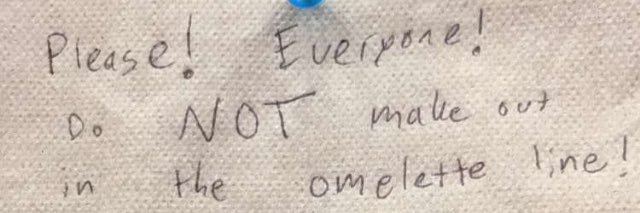 Please! Everyone!
Do NOT make out
in the omelette line!